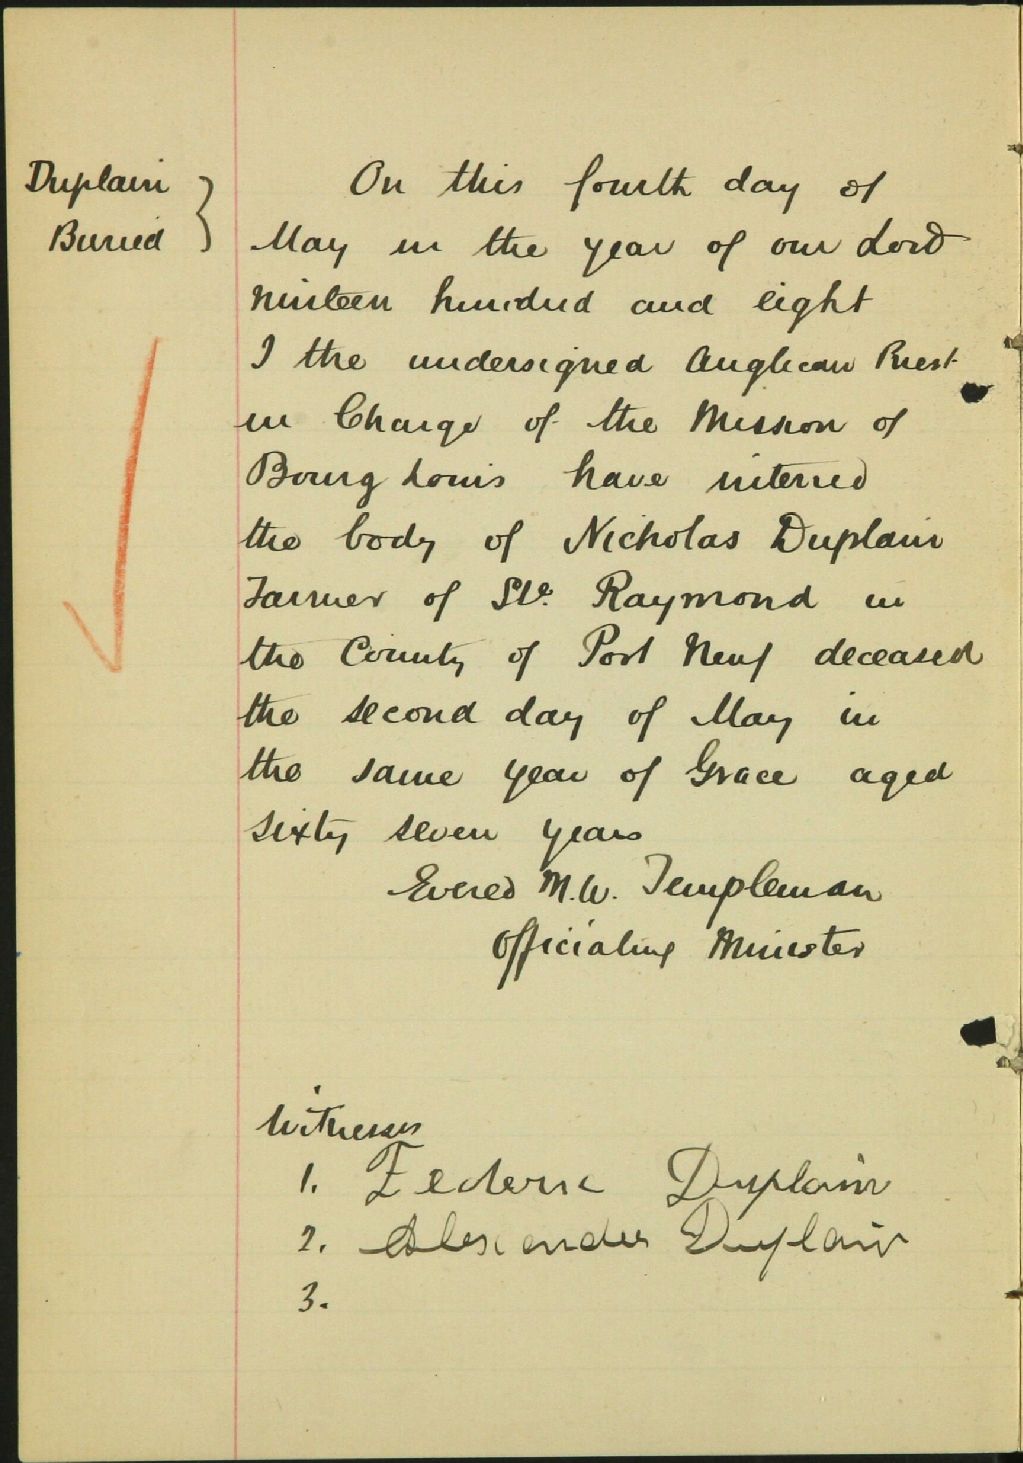 Duplain
Buried
On this fourth day of
May in the year of our Lord
nineteen hundred and eight
I the undersigned Anglican Priest
in Charge of the Mission of
Bourg Louis have interred
the body of Nicholas Duplain
Farmer of Ste. Raymond in
the County of Port Neuf deceased
the second day of May in
the same year of Grace aged
sixty seven years
Evered M.W. Templeman
Officiating Minister
Witnesses
1. Federic Duplain
2. Alexander Duplain
3.